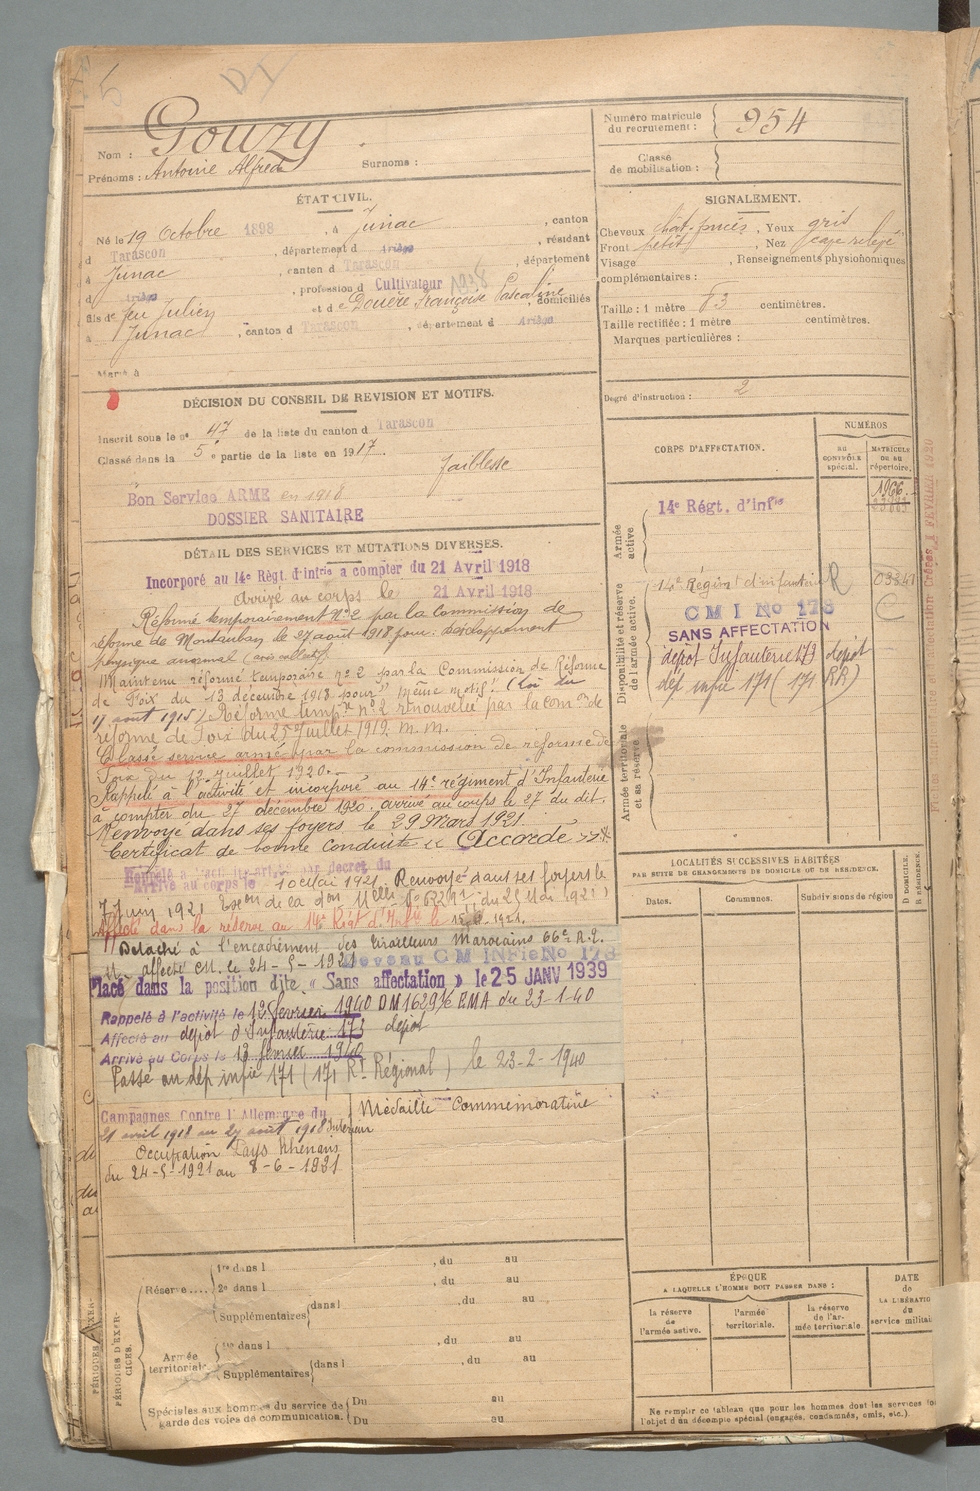 Nom : Gouzy
Prénoms : Antoine Alfred Surnoms :
Numéro matricule
du recrutement : 954
Classe
de mobilisation :
ÉTAT CIVIL.
Né le 19 Octobre 1898, à Junac, canton
d Tarascon, département d Ariège, résidant
à Junac, canton d Tarascon, département
d Ariège, profession d Cultivateur
fils de feu Julien et d Douère Françoise Pascaline, domiciliés
à Junac, canton d Tarascon, département d Ariège
Marié à
SIGNALEMENT.
Cheveux chat. foncés, Yeux gris
Front petit, Nez
Visage , Renseignements physionomiques
complémentaires :
Taille : 1 mètre 63 centimètres.
Taille rectifiée : 1 mètre centimètres.
Marques particulières :
Degré d'instruction : 2
DÉCISION DU CONSEIL DE REVISION ET MOTIFS.
Inscrit sous le n° 47 de la liste du canton d Tarascon
Classé dans la 5e partie de la liste en 1917.
faiblesse
Bon Service ARMÉ en 1918
DOSSIER SANITAIRE
DÉTAIL DES SERVICES ET MUTATIONS DIVERSES.
Incorporé au 14e Régt. d'intrie a compter du 21 Avril 1918
Arrivé au corps le 21 Avril 1918
Réformé temporairement n°2 par la Commission de
réforme de Montauban le 27 août 1918 pour : développement
physique anormal (avis collectif)
Maintenu réformé temporaire n° 2 par la Commission de Réforme
de Foix du 13 décembre 1918 pour " même motif" (Loi du
17 août 1915) Réforme tempre n°2 renouvelée par la comon de
réforme de Foix du 25 Juillet 1919. m. m.
Classé service armé par la commission de réforme de
Foix du 12 Juillet 1920.
Rappelé à l'activité et incorporé au 14e régiment d'Infanterie
à compter du 27 décembre 1920. arrivé au corps le 27 du dit.
Renvoyé dans ses foyers le 29 Mars 1921.
Certificat de bonne conduite « Accordé »
Rappelé à l'activité par decret du
Arrivé au corps le 10 Mai 1921. Renvoyé dans ses foyers le
7 Juin 1921
Affecté dans la réserve au 14e Régt d'Infie le
Détaché à l'encadrement des tirailleurs Marocains 66e R.T.
M. affecté CM. le 24-5-1921 Reversé au CM INFie No 173
Placé dans la position dite « Sans affectation » le 25 JANV 1939
Rappelé à l'activité le 12 février 1940 DM 1629 EMA du 23-1-40
Affecté au dépot d'Infanterie 173 depot
Arrivé au Corps le 13 février 1940
Passé au dép infie 171 (171 Rt Régional) le 23-2-1940
Campagnes Contre l'Allemagne du
21 avril 1918 au 27 août 1918 Intérieur
Occupation Pays Rhénans
du 24-5-1921 au 8-6-1921
Médaille Commémorative
CORPS D'AFFECTATION.
NUMÉROS
AU CONTRÔLE spécial.
MATRICULE OU AU répertoire.
Armée active
14e Régt. d'infie
1966
Disponibilité et réserve de l'armée active.
14e Régiment d'infanterie R
CMI No 173
SANS AFFECTATION
dépot Infanterie 173 depot
dép infie 171 (171 RR)
Armée territoriale et sa réserve
LOCALITÉS SUCCESSIVES HABITÉES
PAR SUITE DE CHANGEMENTS DE DOMICILE OU DE RÉSIDENCE.
Dates. Communes. Subdivisions de région
D DOMICILE. R RÉSIDENCE.
ÉPOQUE
A LAQUELLE L'HOMME DOIT PASSER DANS :
la réserve de l'armée active.
l'armée territoriale.
la réserve de l'armée territoriale.
DATE de LA LIBÉRATIO du service militai
Ne remplir ce tableau que pour les hommes dont les services
l'objet d'un décompte spécial (engagés, condamnés, omis, etc.).
PÉRIODES D'EXERCICES.
Réserve....
1re dans l , du au
2e dans l , du au
Supplémentaires dans l , du au
Armée territoriale.
1re dans l , du au
Supplémentaires dans l , du au
Spéciales aux hommes du service de garde des voies de communication.
Du au
Du au